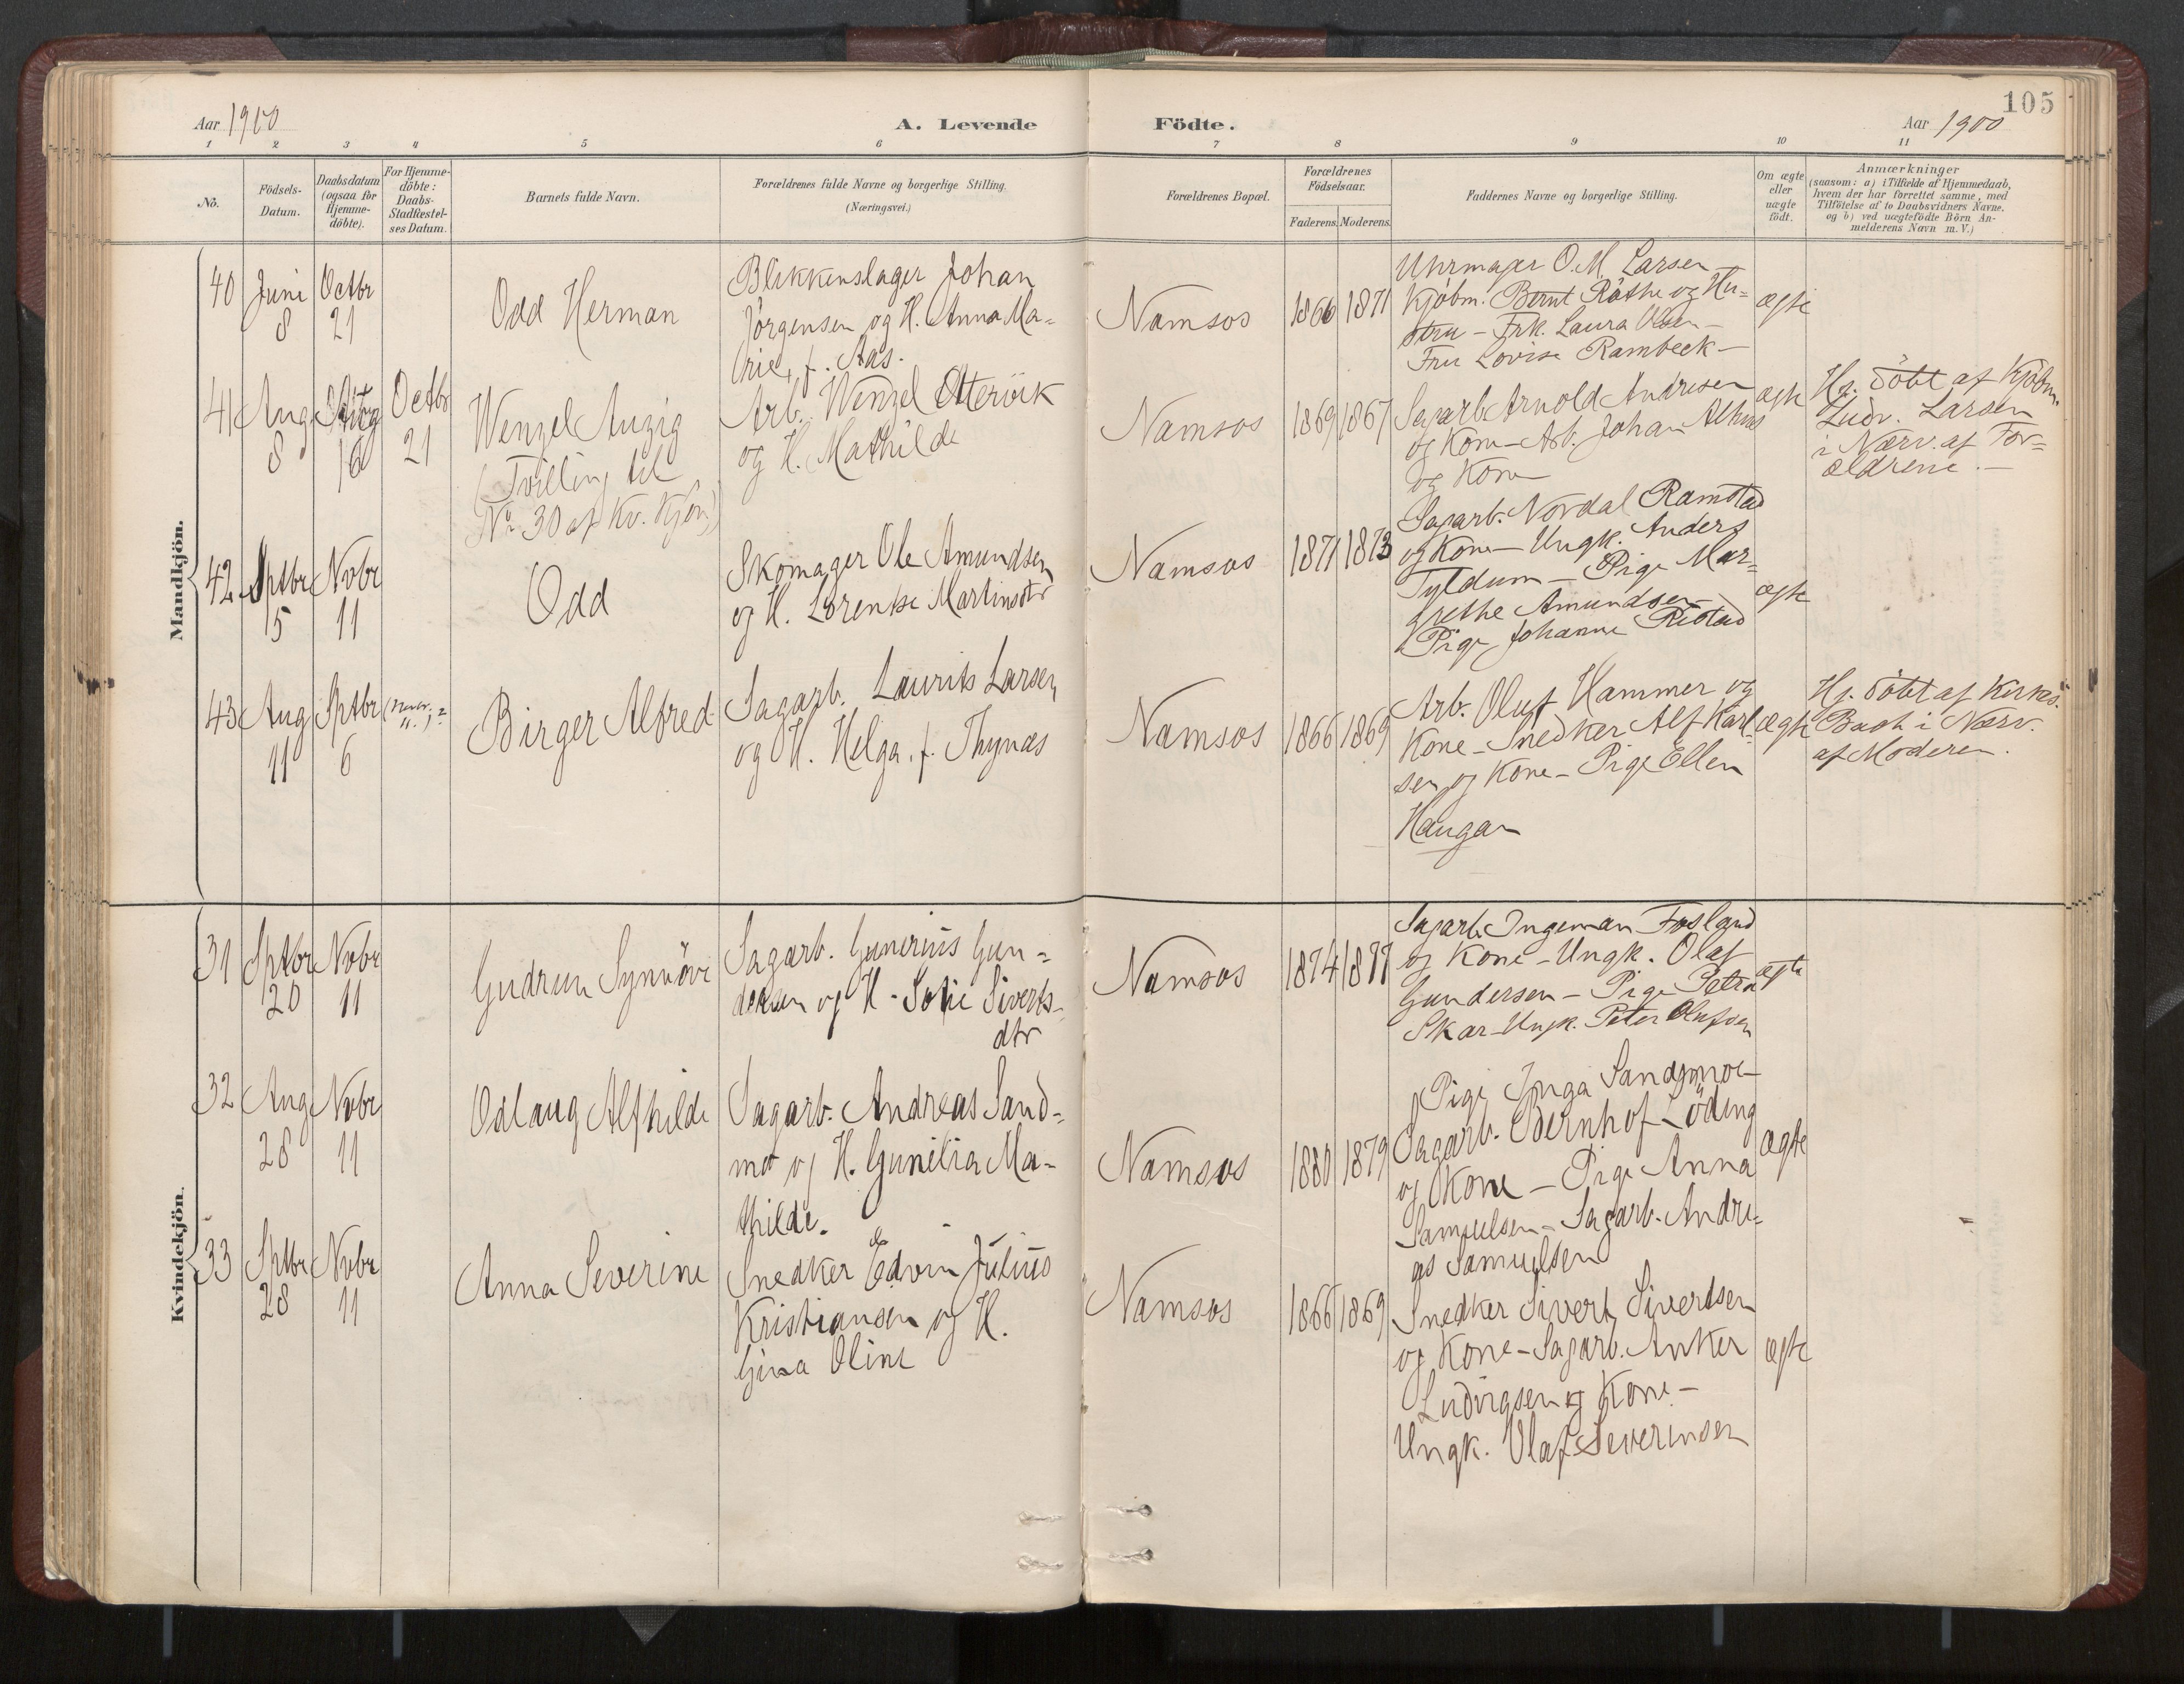 105
Aar 1900
A. Levende
Födte.
Aar 1900
1 2 3 4 5 6 7 8 9 10 11
No.
Födsels-
Datum.
Daabsdatum
(ogsaa for
Hjemme-
döbte).
For Hjemme-
döbte:
Daabs-
Stadfæstel-
ses Datum.
Barnets fulde Navn.
Forældrenes fulde Navne og borgerlige Stilling.
(Næringsvei.)
Forældrenes Bopæl.
Forældrenes
Födselsaar.
Faderens. Moderens.
Faddernes Navne og borgerlige Stilling.
Om ægte
eller
uægte
födt.
Anmærkninger
(saasom: a) i Tilfælde af Hjemmedaab,
hvem der har forrettet samme, med
Tilföielse af to Daabsvidners Navne,
og b) ved uægtefödte Börn An-
melderens Navn m. V.)
Mandkjön.
40
Juni
8
Octbr
21
Odd Herman
Blikkenslager Johan
Jörgensen og H. Anna Ma-
rie, f. Aas.
Namsos
1866 1871
Uhrmager O. M. Larsen
Kjöbm. Bernt Röthe og Hu-
stru - Frk. Laura Olsen -
Fru Lovise Rambeck -
ægte
41
Aug
8
Aug
16
Octbr
21
Wenzel Auzig
(Tvilling til
No 30 af Kv. Kjön)
Arb. Wenzel Ottervik
og H. Mathilde
Namsos
1869 1867
Sagarb. Arnold Andresen
og Kone - Arb. Johan
og Kone
ægte
Hj. döbt af Kjöbm.
Ludv. Larsen
i Nærv. af For-
ældrene. -
42
Sptbr
15
Novbr
11
Odd
Skomager Ole Amundsen
og H. Lorentse Martinsdtr
Namsos
1871 1873
Sagarb. Nordal Ramstad
og Kone - Ungk. Anders
Tyldum - Pige Mar-
grethe Amundsen -
Pige Johanne Ristad
ægte
43
Aug
11
Sptbr
6
Birger Alfred
Sagarb. Laurits Larsen
og H. Helga, f. Thynæs
Namsos
1866 1869
Arb. Oluf Hammer og
Kone - Snedker Alf Karl-
sen og Kone - Pige Ellen
Haugan
ægte
Hj. döbt af Kirkes.
Bach i Nærv.
af Moderen.
Kvindekjön.
31
Sptbr
20
Novbr
11
Gudrun Synnöve
Sagarb. Gunerius Gun-
dersen og H. Sofie Siverts-
dtr
Namsos
1874 1877
Sagarb. Ingeman Fosland
og Kone - Ungk. Olaf
Gundersen - Pige Petra
Skar - Ungk. Peter Olufsen
ægte
32
Aug
28
Novbr
11
Odlaug Alfhilde
Sagarb. Andreas Sand-
mo og H. Gunelia Ma-
thilde.
Namsos
1880 1879
Pige Inga Sandmoe -
Sagarb. Bernhof Löding
og Kone - Pige Anna
Samuelsen - Sagarb. Andre-
as Samuelsen
ægte
33
Sptbr
28
Novbr
11
Anna Severine
Snedker Edvin Julius
Kristiansen og H.
Gina Oline
Namsos
1866 1869
Snedker Sivert Sivertsen
og Kone - Sagarb. Anker
Ludvigsen og Kone -
Ungk. Olaf Severinsen
ægte